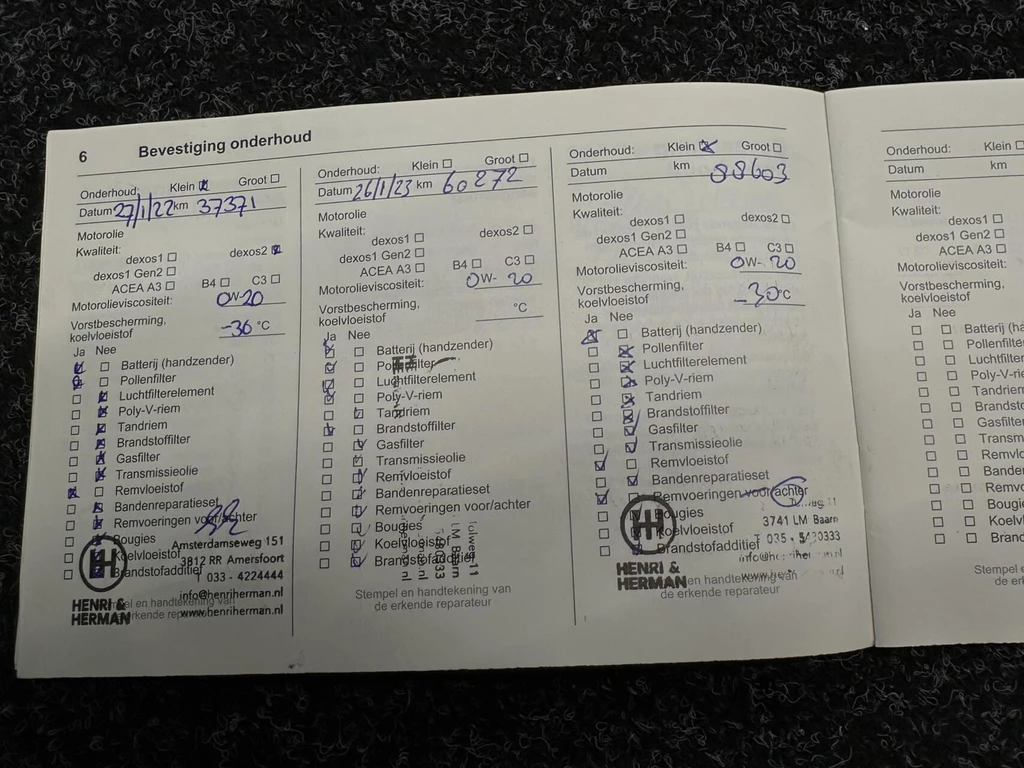 6 Bevestiging onderhoud
Onderhoud: Klein Groot
Datum 27/1/22 km 37371
Motorolie
Kwaliteit:
dexos1 dexos2
dexos1 Gen2
ACEA A3 B4 C3
Motorolieviscositeit: 0W-20
Vorstbescherming,
koelvloeistof -36 °C
Ja Nee
Batterij (handzender)
Pollenfilter
Luchtfilterelement
Poly-V-riem
Tandriem
Brandstoffilter
Gasfilter
Transmissieolie
Remvloeistof
Bandenreparatieset
Remvoeringen voor/achter
Bougies
Koelvloeistof
Brandstofadditief
Amsterdamseweg 151
3812 RR Amersfoort
T 033 - 4224444
info@henriherman.nl
www.henriherman.nl
HENRI &
HERMAN
Stempel en handtekening van
de erkende reparateur
Onderhoud: Klein Groot
Datum 26/1/23 km 60272
Motorolie
Kwaliteit:
dexos1 dexos2
dexos1 Gen2
ACEA A3 B4 C3
Motorolieviscositeit: 0W-20
Vorstbescherming,
koelvloeistof °C
Ja Nee
Batterij (handzender)
Pollenfilter
Luchtfilterelement
Poly-V-riem
Tandriem
Brandstoffilter
Gasfilter
Transmissieolie
Remvloeistof
Bandenreparatieset
Remvoeringen voor/achter
Bougies
Koelvloeistof
Brandstofadditief
LM Baarn
Stempel en handtekening van
de erkende reparateur
Onderhoud: Klein Groot
Datum km 88603
Motorolie
Kwaliteit:
dexos1 dexos2
dexos1 Gen2
ACEA A3 B4 C3
Motorolieviscositeit: 0W-20
Vorstbescherming,
koelvloeistof -30°C
Ja Nee
Batterij (handzender)
Pollenfilter
Luchtfilterelement
Poly-V-riem
Tandriem
Brandstoffilter
Gasfilter
Transmissieolie
Remvloeistof
Bandenreparatieset
Remvoeringen voor/achter
Bougies
Koelvloeistof
Brandstofadditief
3741 LM Baarn
HENRI &
HERMAN
en handtekening van
de erkende reparateur
Onderhoud: Klein
Datum km
Motorolie
Kwaliteit:
dexos1
dexos1 Gen2
ACEA A3
Motorolieviscositeit:
Vorstbescherming,
koelvloeistof
Ja Nee
Batterij (ha
Pollenfilte
Luchtfilte
Poly-V-r
Tandrie
Brandst
Gasfilte
Transm
Remvl
Banden
Remvo
Bougi
Koelv
Branc
Stempel e
de er